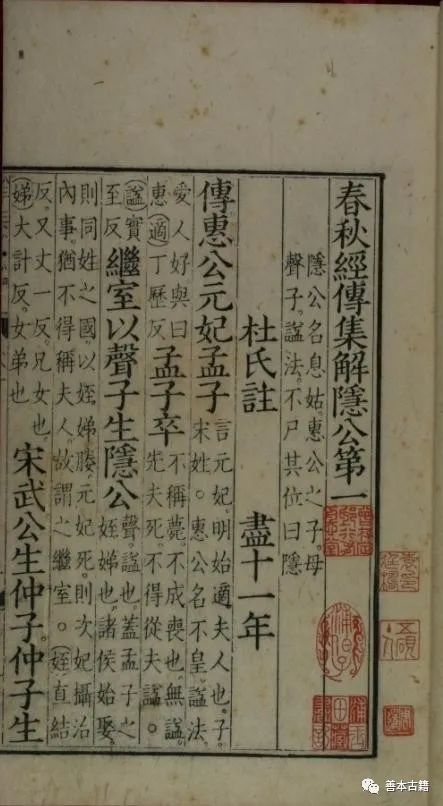 春秋經傳集解隱公第一
隱公名息姑。惠公之子。母
聲子。謚法。不尸其位曰隱
杜氏註 盡十一年
傳惠公元妃孟子
言元妃。明始適夫人也。子。
宋姓。惠公名不皇。謚法。
愛人好與曰
惠(適)丁歷反
孟子卒
不稱薨。不成喪也。無謚。
先夫死。不得從夫謚。
(謚)實
至反
繼室以聲子生隱公
聲。謚也。蓋孟子之
姪娣也。諸侯始娶。
則同姓之國。以姪娣媵。元妃死。則次妃攝治
內事。猶不得稱夫人。故謂之繼室。(姪)直結
反。又丈一反。兄女也
(娣)大計反。女弟也
宋武公生仲子。仲子生
善本古籍